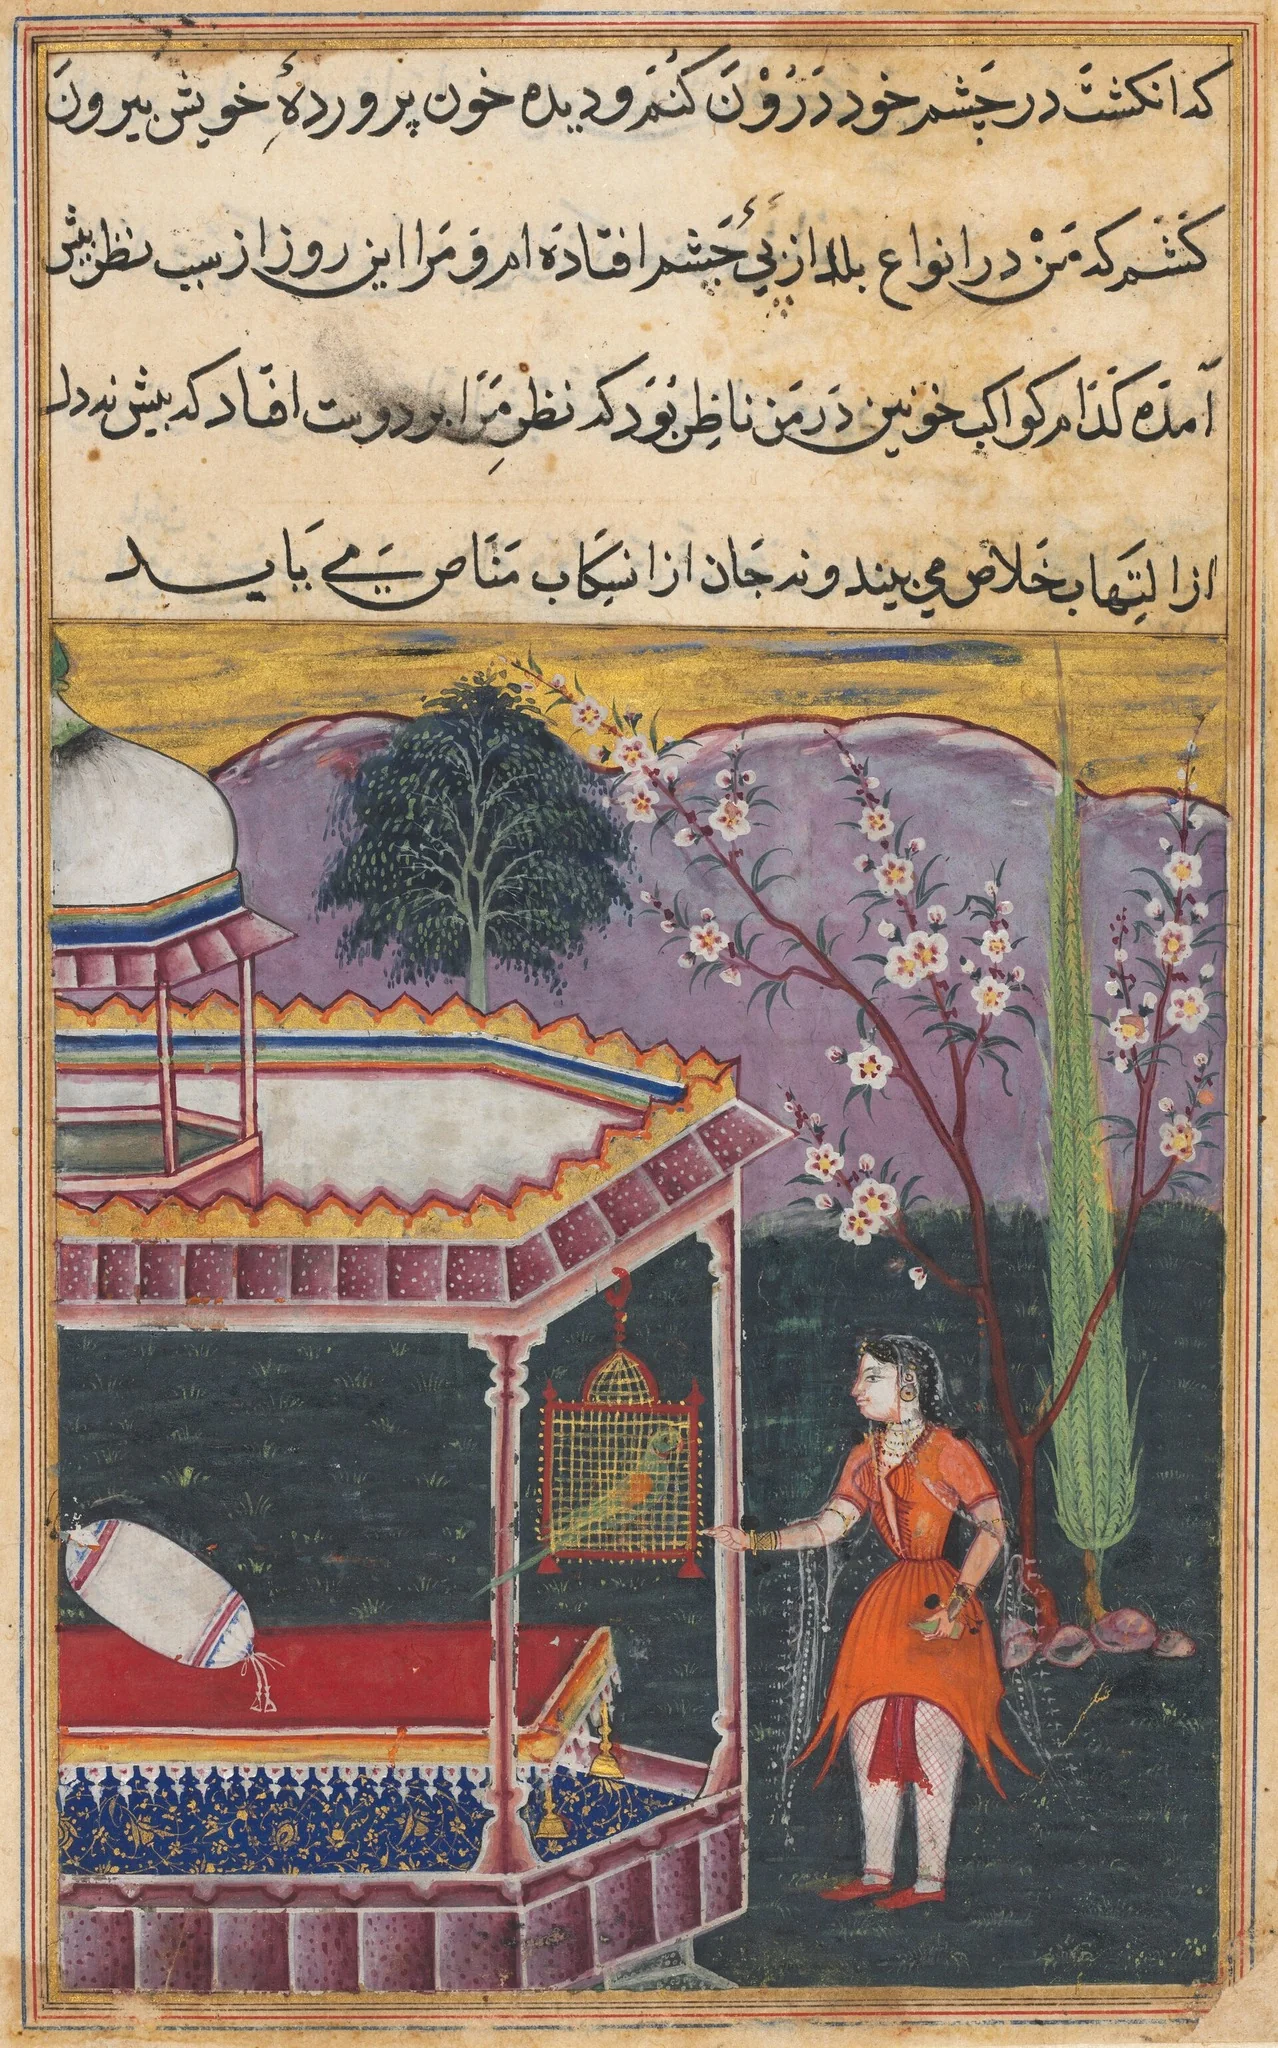 که انکشت در چشم خود دَرُوْنَ کُنَم و دیده خون پروردهٔ خویش بیرون
کَشَم که مَنْ در انواع بلا از پیٔ چشم افتادَه ام و مَرا این روز از سبب نظر پیش
آمدَه کَدَام کواکب خونین دَر مَن ناظِر بَوَد که نظرِ مَرَا بر دوست افتاد که بیش نه دل
از اِلتِهاب خَلاص می بیند و نه جَان از انسِکَاب مَنَاص مے یَابد